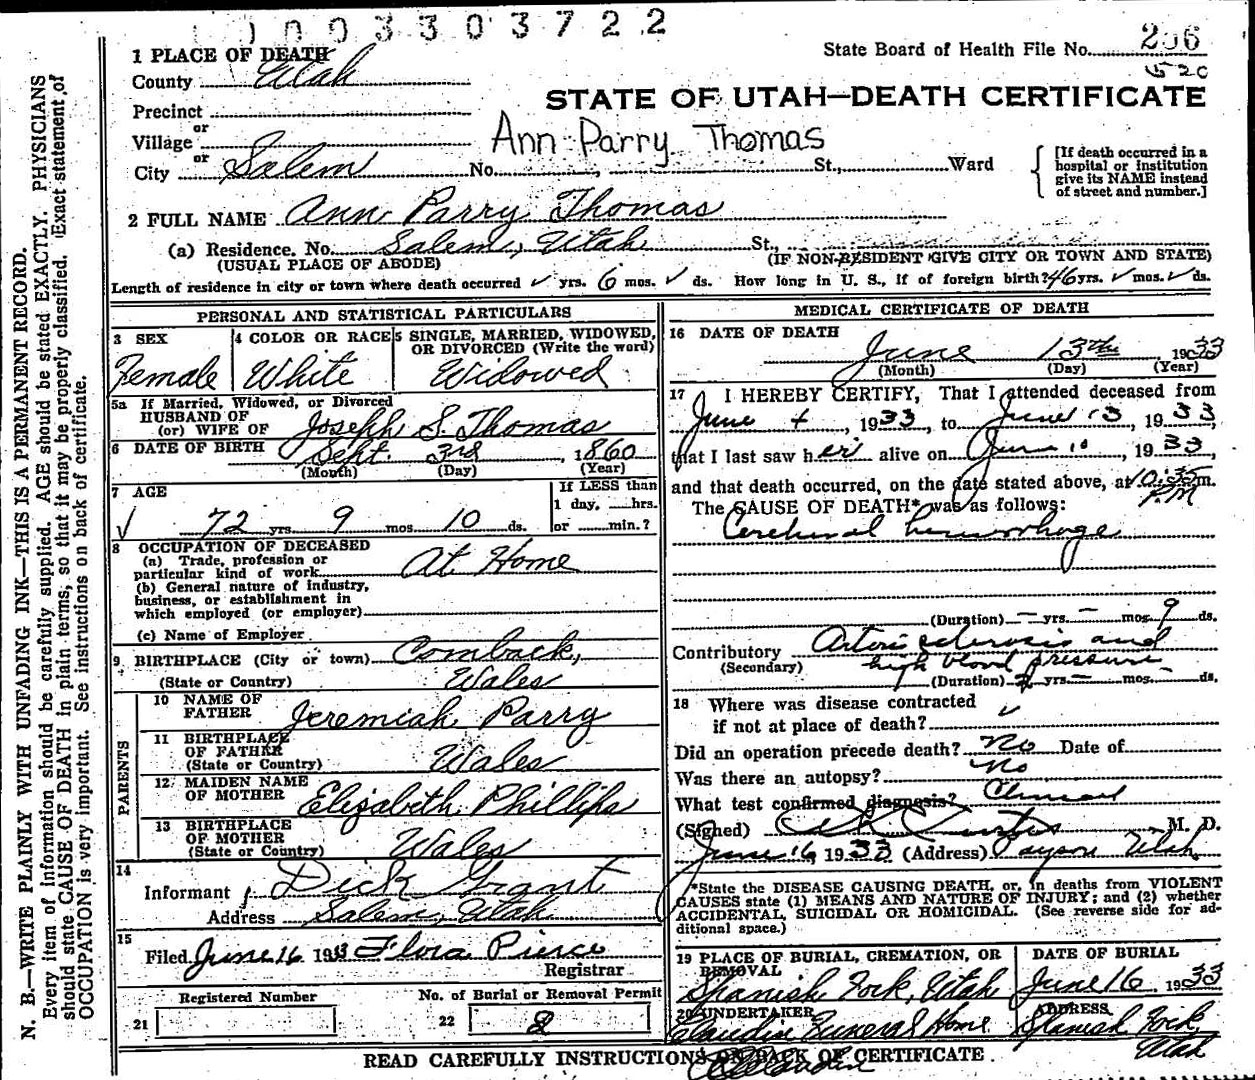 1003303722
State Board of Health File No. 206
520
1 PLACE OF DEATH
County Utah
STATE OF UTAH—DEATH CERTIFICATE
Precinct
or
Village
Ann Parry Thomas
or
City Salem No. St., Ward
[If death occurred in a hospital or institution give its NAME instead of street and number.]
2 FULL NAME Ann Parry Thomas
(a) Residence. No. Salem, Utah St.,
(USUAL PLACE OF ABODE) (IF NON-RESIDENT GIVE CITY OR TOWN AND STATE)
Length of residence in city or town where death occurred ✓ yrs. 6 mos. ✓ ds. How long in U. S., if of foreign birth? 46 yrs. ✓ mos. ✓ ds.
PERSONAL AND STATISTICAL PARTICULARS
3 SEX
Female
4 COLOR OR RACE
White
5 SINGLE, MARRIED, WIDOWED, OR DIVORCED (Write the word)
Widowed
5a If Married, Widowed, or Divorced
HUSBAND OF
(or) WIFE OF Joseph S. Thomas
6 DATE OF BIRTH Sept. 3rd, 1860
(Month) (Day) (Year)
7 AGE
✓ 72 yrs. 9 mos. 10 ds.
If LESS than
1 day, hrs.
or min.?
8 OCCUPATION OF DECEASED
(a) Trade, profession or
particular kind of work At Home
(b) General nature of industry,
business, or establishment in
which employed (or employer)
(c) Name of Employer
9 BIRTHPLACE (City or town) Comback,
(State or Country) Wales
PARENTS
10 NAME OF
FATHER Jeremiah Parry
11 BIRTHPLACE
OF FATHER
(State or Country) Wales
12 MAIDEN NAME
OF MOTHER Elizabeth Phillips
13 BIRTHPLACE
OF MOTHER
(State or Country) Wales
14
Informant Dick Grant
Address Salem, Utah
15
Filed June 16 1933 Flora Pierce
Registrar
Registered Number
21
No. of Burial or Removal Permit
22 2
MEDICAL CERTIFICATE OF DEATH
16 DATE OF DEATH
June 13th, 1933
(Month) (Day) (Year)
17 I HEREBY CERTIFY, That I attended deceased from
June 4, 1933, to June 13, 1933,
that I last saw her alive on June 10, 1933,
and that death occurred, on the date stated above, at 10:35 m.
P.M
The CAUSE OF DEATH* was as follows:
Cerebral hemorrhage
(Duration) — yrs. — mos. 9 ds.
Contributory Arterio sclerosis and
(Secondary) high blood pressure
(Duration) 2 yrs. — mos. — ds.
18 Where was disease contracted
if not at place of death? ✓
Did an operation precede death? No Date of
Was there an autopsy? No
What test confirmed diagnosis? Clinical
(Signed) Curtis M. D.
June 16 1933 (Address) Payson Utah
*State the DISEASE CAUSING DEATH, or, in deaths from VIOLENT
CAUSES state (1) MEANS AND NATURE OF INJURY; and (2) whether
ACCIDENTAL, SUICIDAL OR HOMICIDAL. (See reverse side for ad-
ditional space.)
19 PLACE OF BURIAL, CREMATION, OR
REMOVAL
Spanish Fork, Utah
DATE OF BURIAL
June 16, 1933
20 UNDERTAKER
Claudin Funeral Home
ADDRESS
Spanish Fork,
Utah
READ CAREFULLY INSTRUCTIONS ON BACK OF CERTIFICATE
N. B.—WRITE PLAINLY WITH UNFADING INK—THIS IS A PERMANENT RECORD.
Every item of information should be carefully supplied. AGE should be stated EXACTLY. PHYSICIANS
should state CAUSE OF DEATH in plain terms, so that it may be properly classified. Exact statement of
OCCUPATION is very important. See instructions on back of certificate.